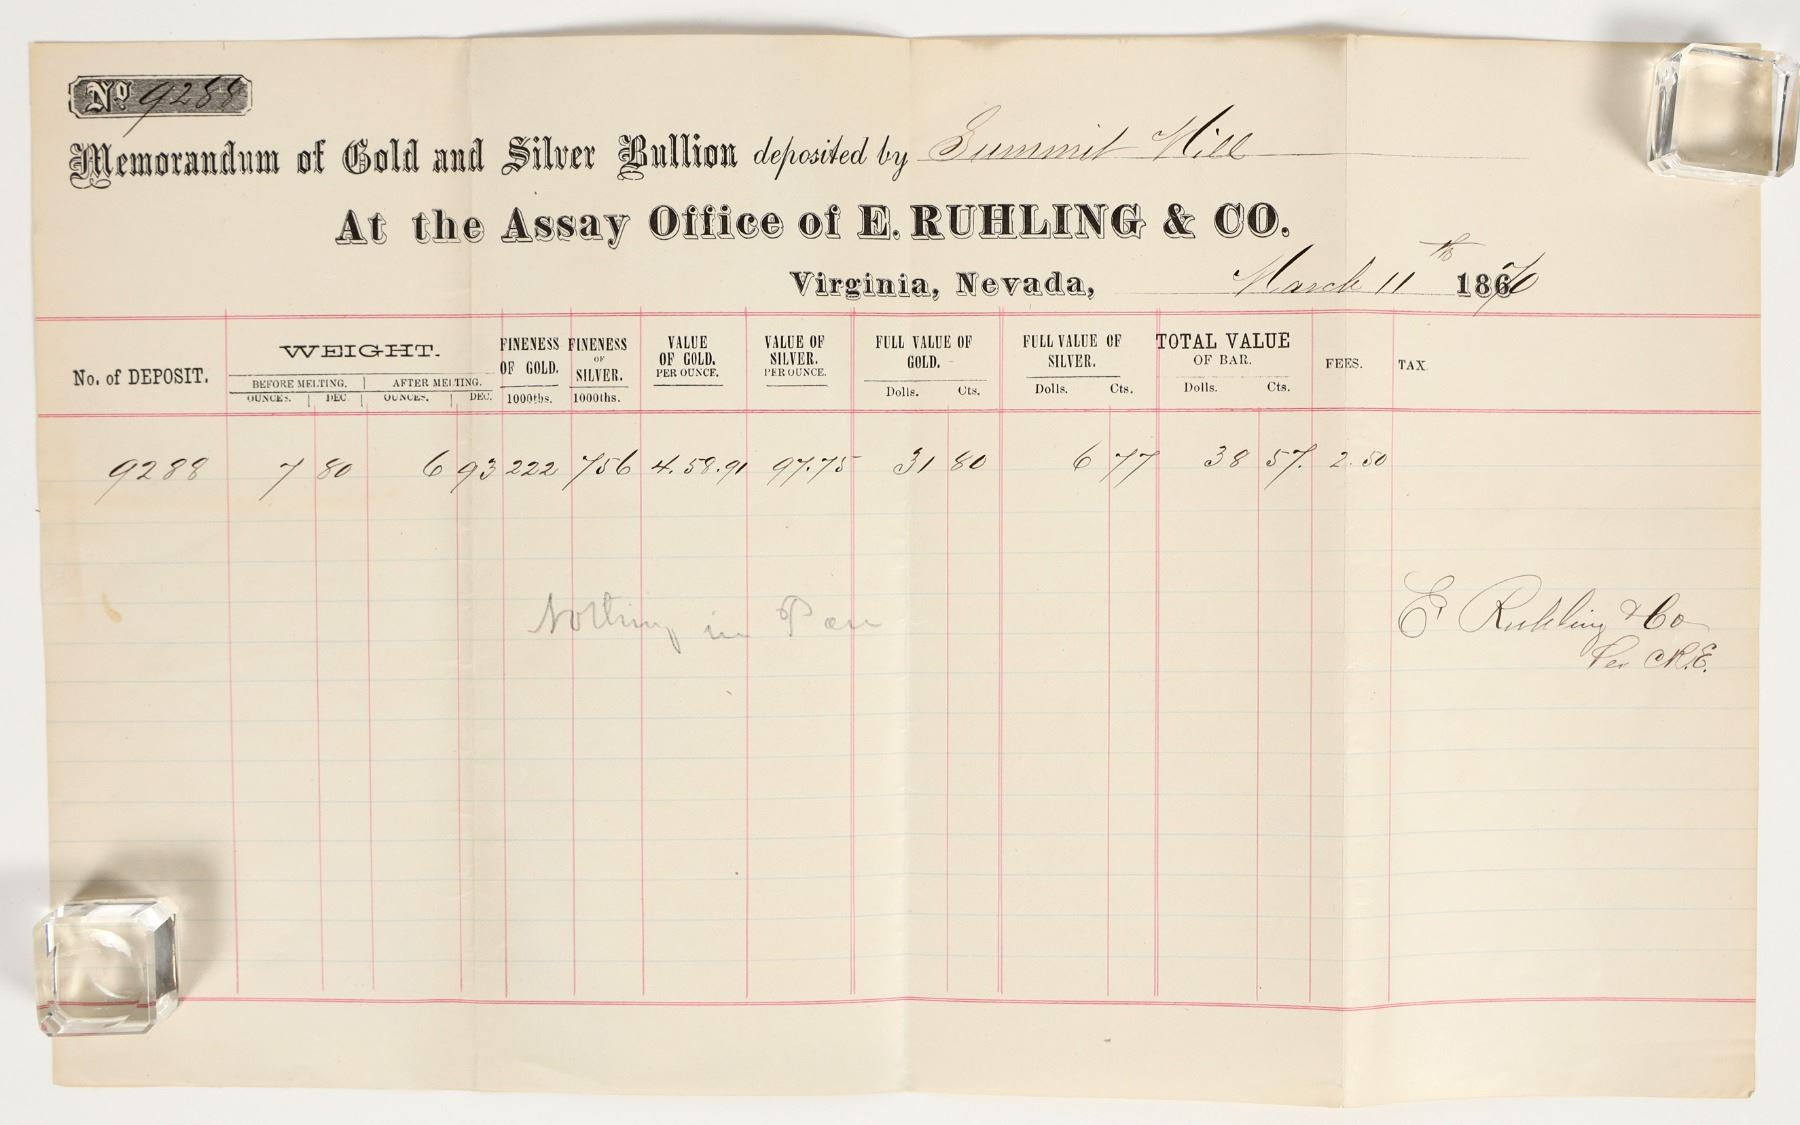 No. 9288
Memorandum of Gold and Silver Bullion deposited by Summit Mill
At the Assay Office of E. RUHLING & CO.
Virginia, Nevada, March 11th 1870
No. of DEPOSIT. WEIGHT. BEFORE MELTING. OUNCES. DEC. AFTER MELTING. OUNCES. DEC. FINENESS OF GOLD. 1000ths. FINENESS OF SILVER. 1000ths. VALUE OF GOLD. PER OUNCE. VALUE OF SILVER. PER OUNCE. FULL VALUE OF GOLD. Dolls. Cts. FULL VALUE OF SILVER. Dolls. Cts. TOTAL VALUE OF BAR. Dolls. Cts. FEES. TAX.
9288 7 80 6 93 222 756 4.58.91 97.75 31 80 6 77 38 57. 2.50
Nothing in Pan
E Ruhling & Co
Per